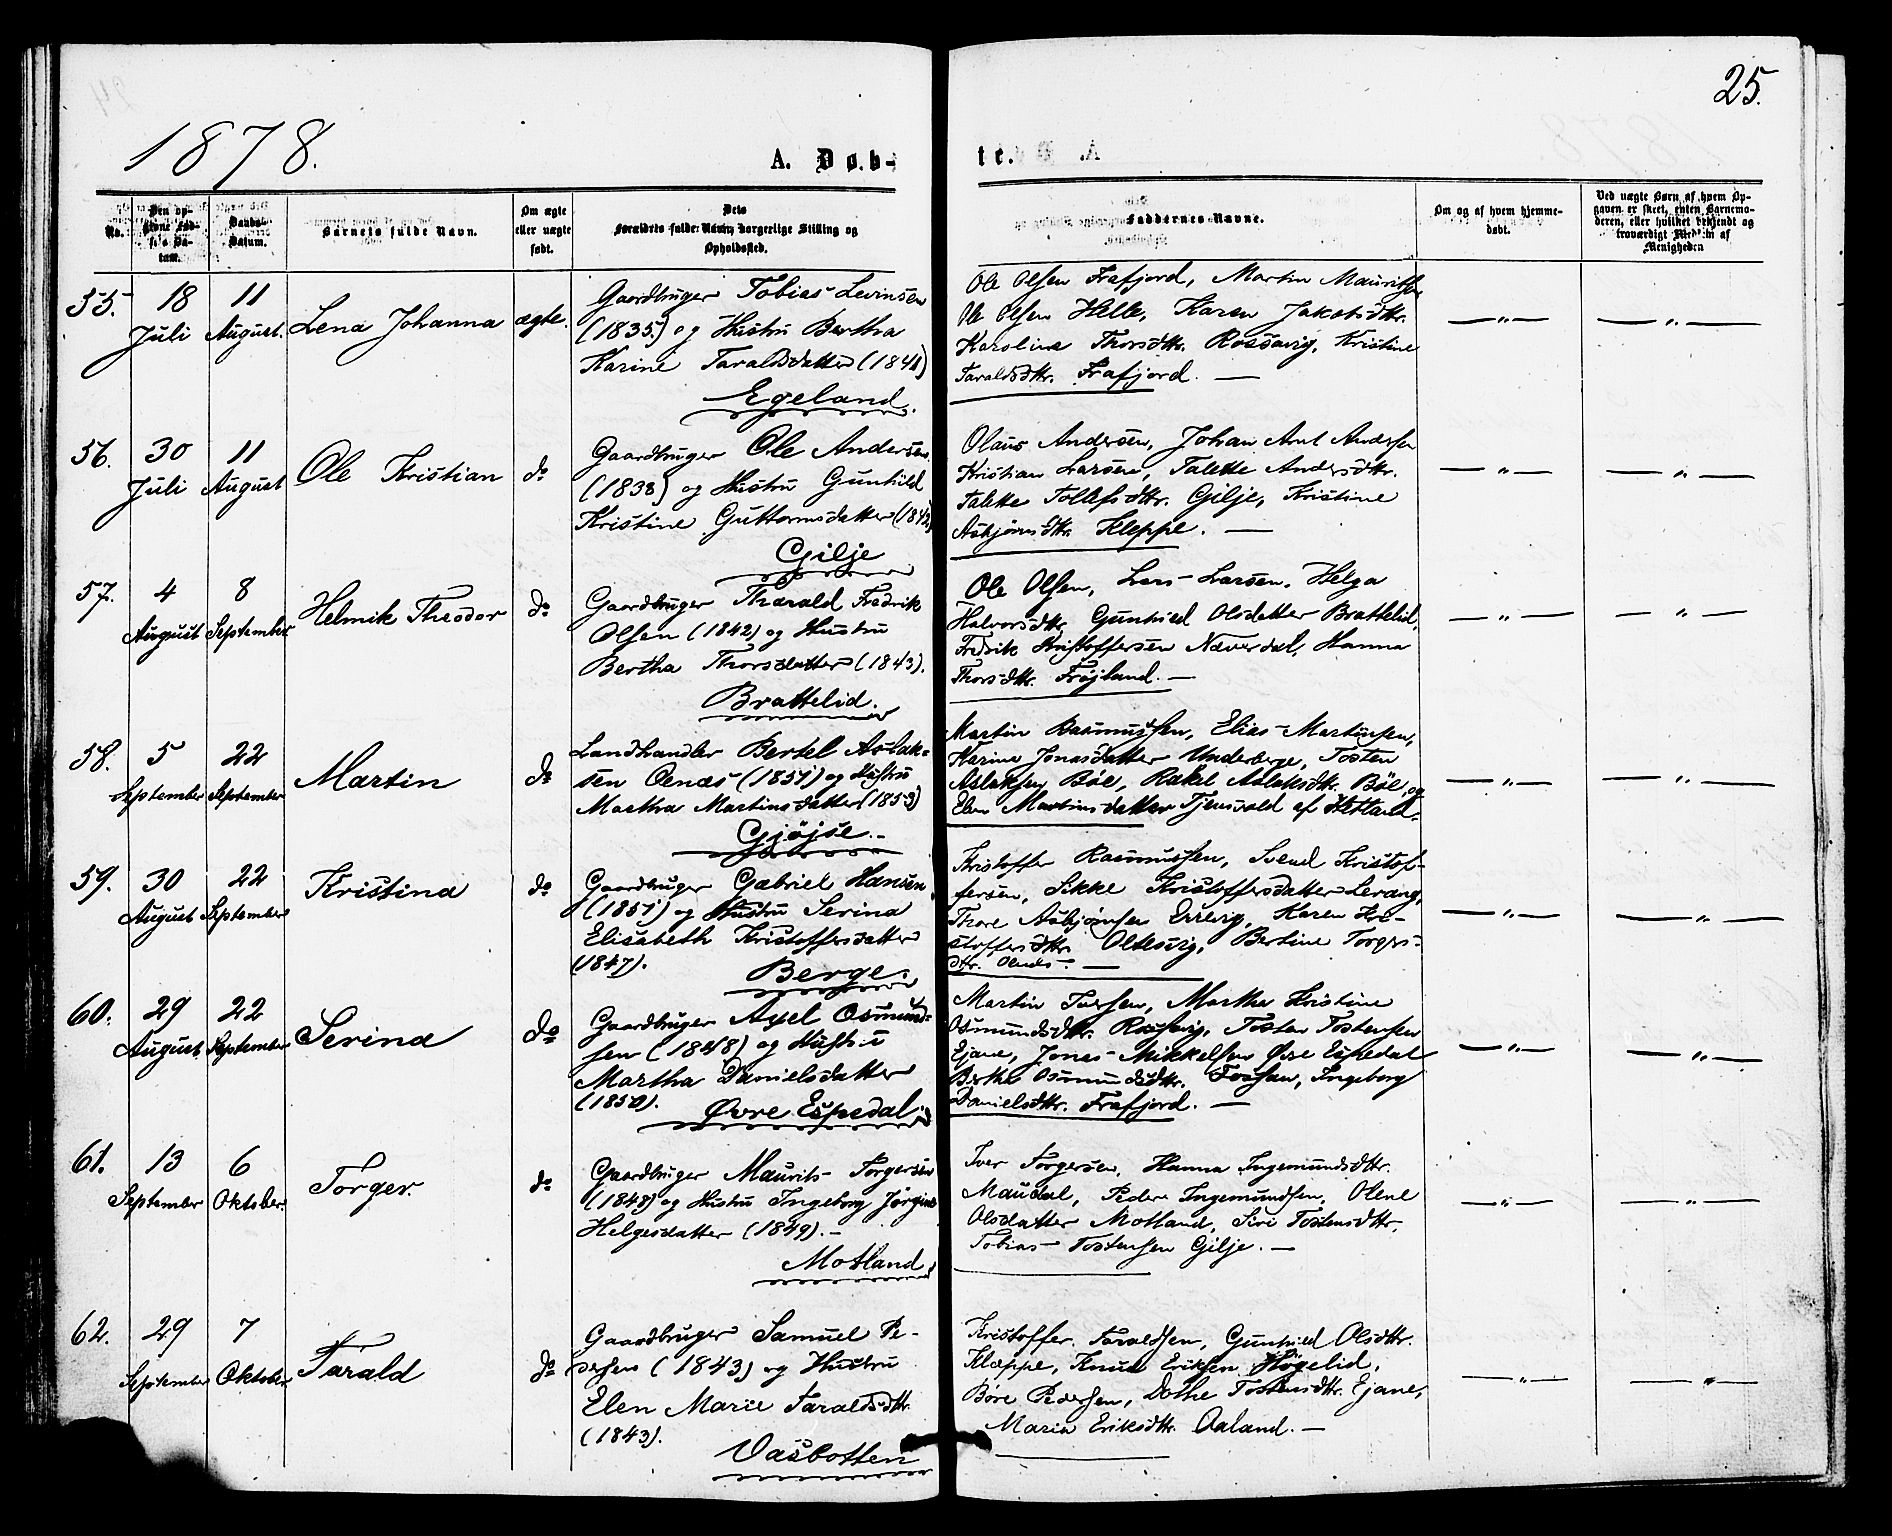 25.
1878.
A. Døb-
te.
No.
Barnets fulde Navn.
Om ægte eller uægte født.
Forældres fulde Navn, borgerlige Stilling og Opholdssted.
Faddernes Navne.
Om og af hvem hjemmedøbt.
Ved uægte Børn af hvem Opgaven er skeet, enten Barnemoderen, eller hvilket bekjendt og troværdigt Medlem af Menigheden
55. 18 Juli 11 August. Lena Johanna ægte.
Gaardbruger Tobias Levinsen
(1835.) og Hustru Bertha
Karine Taraldsdatter (1841)
Egeland.
Ole Olsen Frafjord, Martin Mauritsen
Ole Olsen Helle, Karen Jakobsdttr.
Karolina Thorsdttr. Rossavig, Kristine
Taraldsdttr. Frafjord. —
— " — — " —
56. 30 Juli 11 August Ole Kristian do
Gaardbruger Ole Andersen
(1838) og Hustru Gunhild
Kristine Guttormsdatter (1842)
Gilje
Olaus Andersen, Johan Arnt Andersen
Kristian Larsen, Talette Andersdttr.
Talette Tollefsdttr. Gilje, Kristine
Asbjørnsdttr. Kleppe. —
— " — — " —
57. 4 August 8 September. Helmik Theodor do
Gaardbruger Tharald Fredrik
Olsen (1842) og Hustru
Bertha Thorsdatter (1843).
Brattelid.
Ole Olsen, Lars Larsen. Helga
Halvorsdttr. Gunhild Olsdatter Brattelid,
Fredrik Kristoffersen Næverdal, Hanna
Thorsdttr. Frøjland. —
— " — — " —
58. 5 September 22 September Martin do
Landhandler Bertel Aslak-
sen Oenæs (1851) og Hustru
Martha Martinsdatter (1853)
Gjøjse.
Martin Rasmussen, Elias Martinsen,
Karina Jonasdatter Underberge, Tosten
Aslaksen Bøe, Rakel Aslaksdttr. Bøe og
Elen Martinsdatter Tjensvold af Hetland.
— " — — " —
59. 30 August 22 September Kristina do
Gaardbruger Gabriel Hansen
(1851) og Hustru Serina
Elisabeth Kristoffersdatter
(1847).
Berge.
Kristoffer Rasmussen, Svend Kristof-
fersen, Sikke Kristoffersdatter Levang,
Thore Asbjørnsen Errevig, Karen Kri-
stoffersdttr. Oltesvig, Bertine Torgers-
dttr. Oenæs. —
— " — — " —
60. 29 August 22 September Serina do
Gaardbruger Axel Osmund-
sen (1848) og Hustru
Martha Danielsdatter
(1850).
Øvre Espedal.
Martin Iversen, Martha Kristine
Osmundsdttr. Rossavig, Tosten Tostensen
Ejane, Jonas Mikkelsen Øvre Espedal
Berthe Osmundsdttr. Fossan, Ingeborg
Danielsdttr. Frafjord. —
— " — — " —
61. 13 September 6 Oktober. Torger. do
Gaardbruger Maurits Torgersen
(1848) og Hustru Ingeborg Jørgine
Helgesdatter (1849). —
Motland.
Iver Torgersen, Hanna Ingemundsdttr.
Maudal, Peder Ingemundsen, Olene
Olsdatter Motland, Siri Tostensdttr,
Tobias Tostensen Gilje. —
— " — — " —
62. 29 September 7 Oktober Tarald do
Gaardbruger Samuel Pe-
dersen (1843) og Hustru
Elen Marie Taraldsdttr.
(1843).
Vasbotten
Kristoffer Taraldsen, Gunhild Olsdttr.
Kleppe, Knud Eriksen Høgelid,
Børe Pedersen, Dothe Tostensdttr. Ejane,
Maria Eriksdttr. Aaland. —
— " — — " —